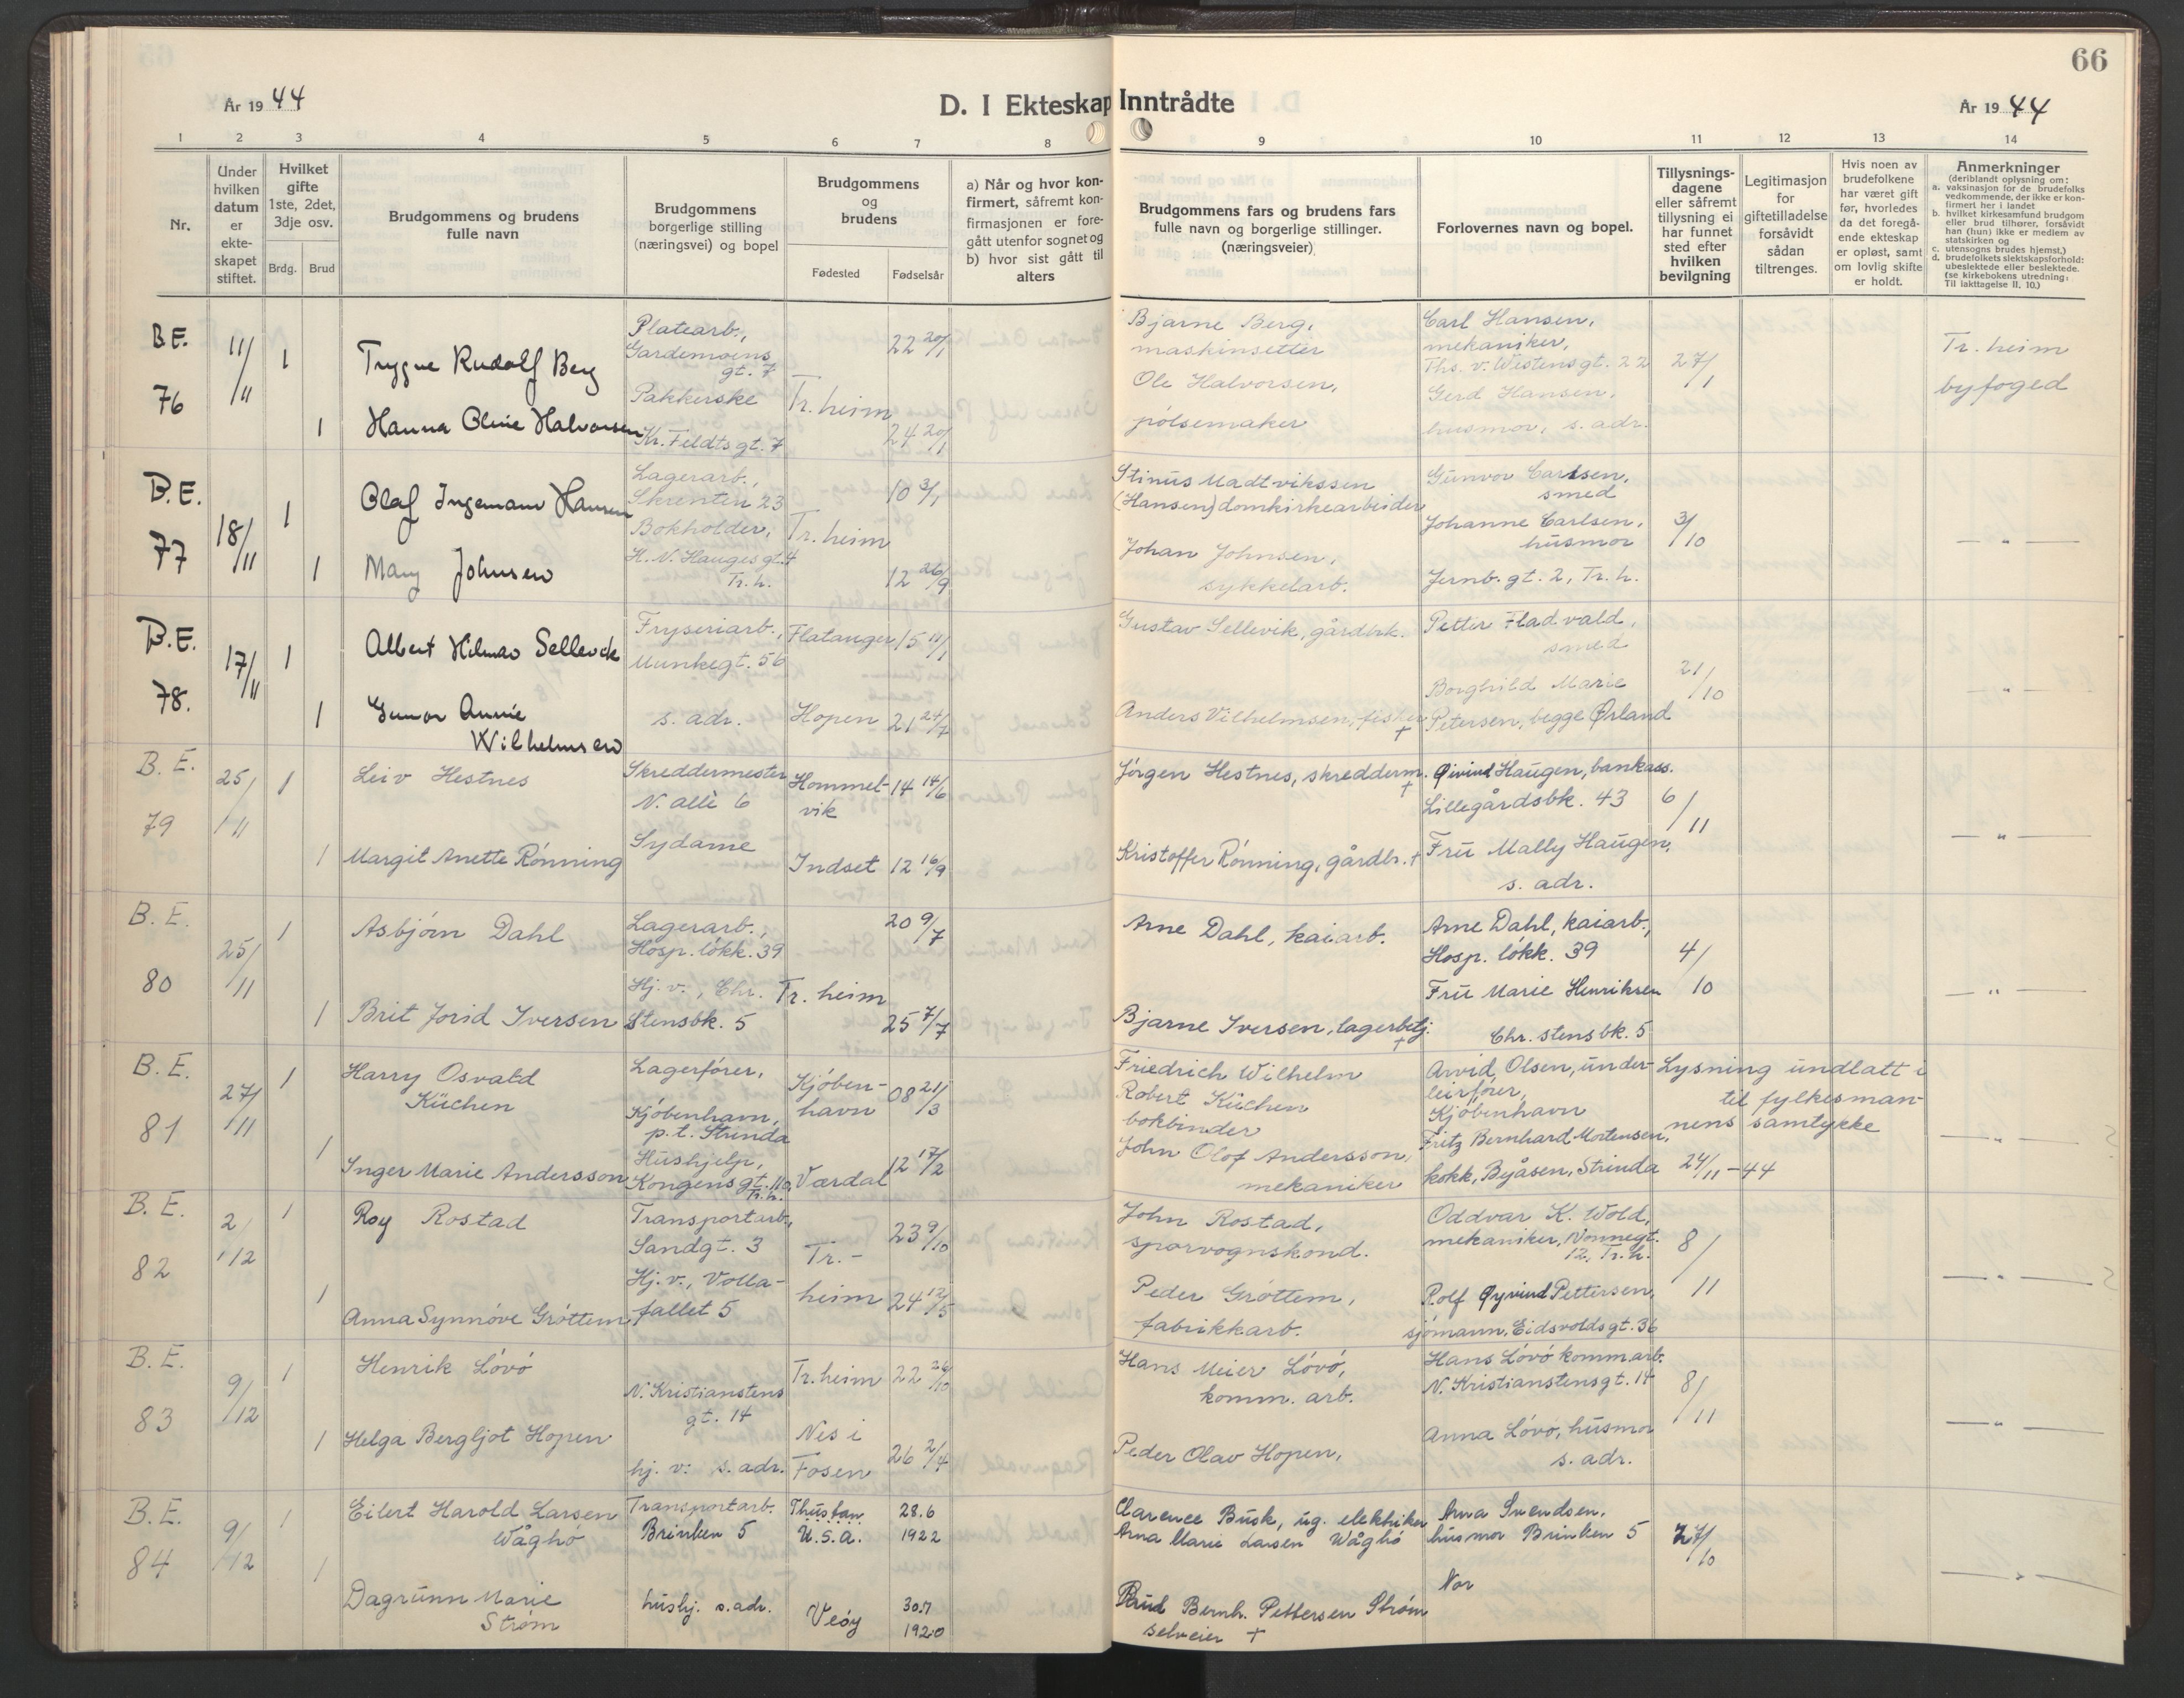 66
År 1944
D. I Ekteskap Inntrådte
År 1944
1 2 3 4 5 6 7 8 9 10 11 12 13 14
Nr.
Under
hvilken
datum
er
ekte-
skapet
stiftet.
Hvilket
gifte
1ste, 2det,
3dje osv.
Brdg. Brud
Brudgommens og brudens
fulle navn
Brudgommens
borgerlige stilling
(næringsvei) og bopel
Brudgommens
og
brudens
Fødested Fødselsår
a) Når og hvor kon-
firmert, såfremt kon-
firmasjonen er fore-
gått utenfor sognet og
b) hvor sist gått til
alters
Brudgommens fars og brudens fars
fulle navn og borgerlige stillinger.
(næringsveier)
Forlovernes navn og bopel.
Tillysnings-
dagene
eller såfremt
tillysning ei
har funnet
sted efter
hvilken
bevilgning
Legitimasjon
for
giftetilladelse
forsåvidt
sådan
tiltrenges.
Hvis noen av
brudefolkene
har været gift
før, hvorledes
da det foregå-
ende ekteskap
er opløst, samt
om lovlig skifte
er holdt.
Anmerkninger
(deriblandt oplysning om:
a. vaksinasjon for de brudefolks
vedkommende, der ikke er kon-
firmert her i landet
b. hvilket kirkesamfund brudgom
eller brud tilhører, forsåvidt
han (hun) ikke er medlem av
statskirken og
c. utensogns brudes hjemst.)
d. brudefolkets slektskapsforhold:
ubeslektede eller beslektede.
(se kirkebokens utredning:
Til Iakttagelse II. 10.)
B.E.
76
11/11
1
Trygve Rudolf Berg
Platearb.,
Gardemoens
gt. 7
22 20/1
Bjarne Berg,
maskinsetter
Carl Hansen,
mekaniker,
Ths. v. Westensgt. 22
27/1
Tr. heim
byfoged
1
Hanna Oline Halvorsen
Pakkerske
Kr. Feldtsgt. 7
Tr. heim
24 20/1
Ole Halvorsen,
pølsemaker
Gerd Hansen,
husmor, s. adr.
B.E.
77
18/11
1
Olaf Ingemann Hansen
Lagerarb.,
Skrenten 23
10 3/1
Stinus Madtvikssen
(Hansen) domkirkearbeider
Gunvor Carlsen,
smed
3/10
— " —
1
Mary Johnsen
Bokholder,
H. N. Haugesgt. 4
Tr. h.
Tr. heim
12 26/9
Johan Johnsen,
sykkelarb.
Johanne Carlsen,
husmor
Jernb. gt. 2, Tr. h.
B.E.
78.
17/11
1
Albert Hilmar Sellevik
Fryseriarb.,
Munkegt. 56
Flatanger
15 11/1
Gustav Sellevik, gårdbrk.
Petter Fladvald,
smed
21/10
— " —
1
Gunvor Annie
Wilhelmsen
s. adr.
Hopen
21 24/7
Anders Vilhelmsen, fisker
+
Borghild Marie
Petersen, begge Ørland
B. E.
79
25/11
1
Leiv Hestnes
Skreddermester
N. allè 6
Hommel-
vik
14 14/6
Jørgen Hestnes, skredderm.
+
Øivind Haugen, bankass.
Lillegårdsbk. 43
6/11
— " —
1
Margit Anette Rønning
Sydame
Indset
12 16/9
Kristoffer Rønning, gårdbr. +
Fru Mally Haugen,
s. adr.
B. E.
80
25/11
1
Asbjørn Dahl
Lagerarb.,
Hosp. løkk. 39
20 9/7
Arne Dahl, kaiarb.
Arne Dahl, kaiarb.,
Hosp. løkk. 39
4/10
— " —
1
Brit Jorid Iversen
Hj. v., Chr.
Stensbk. 5
Tr. heim
25 7/7
Bjarne Iversen, lagerbetj.
+
Fru Marie Henriksen
Chr. stensbk. 5
B. E.
81
27/11
1
Harry Osvald
Küchen
Lagerfører,
Kjøbenhavn,
p.t. Strinda
Kjøben-
havn
08 21/3
Friedrich Wilhelm
Robert Küchen
bokbinder
Arvid Olsen, under-
leirfører,
Kjøbenhavn
Lysning undlatt i
til fylkesman-
nens samtykke
24/11 - 44
— " —
1
Inger Marie Andersson
Hushjelp,
Kongensgt. 110,
Tr. h.
Værdal
12 17/2
John Olof Andersson,
mekaniker
Fritz Bernhard Mortensen,
kokk, Byåsen, Strinda
B. E.
82
2/12
1
Roy Rostad
Transportarb.,
Sandgt. 3
Tr.-
heim
23 9/10
John Rostad,
sporvognskond.
Oddvar K. Wold,
mekaniker, Nonnegt.
12, Tr. h.
8/11
— " —
1
Anna Synnøve Grøttem
Hj. v., Volla-
fallet 5
24 12/5
Peder Grøttem,
fabrikkarb.
Rolf Øyvind Pettersen,
sjømann, Eidsvoldsgt. 36
B. E.
83
9/12
1
Henrik Løvø
N. Kristianstens
gt. 14
Tr. heim
22 26/10
Hans Meier Løvø,
komm. arb.
Hans Løvø komm.arb.
N. Kristianstensgt. 14
8/11
— " —
1
Helga Bergljot Hopen
hj. v. s. adr.
Nes i
Fosen
26 2/4
Peder Olav Hopen,
Anna Løvø, husmor
s. adr.
B. E.
84
9/12
1
Eilert Harold Larsen
Wåghø
Transportarb.
Brinken 5
Thustan
U.S.A.
28.6
1922
Clarence Busk, ug. elektriker
Arna Marie Larsen Wåghø
Arna Svendsen,
husmor Brinken 5
27/10
— " —
1
Dagrunn Marie
Strøm
hushj. s. adr.
Veøy
30.7
1920
Bernh. Pettersen Strøm
selveier +
Nor